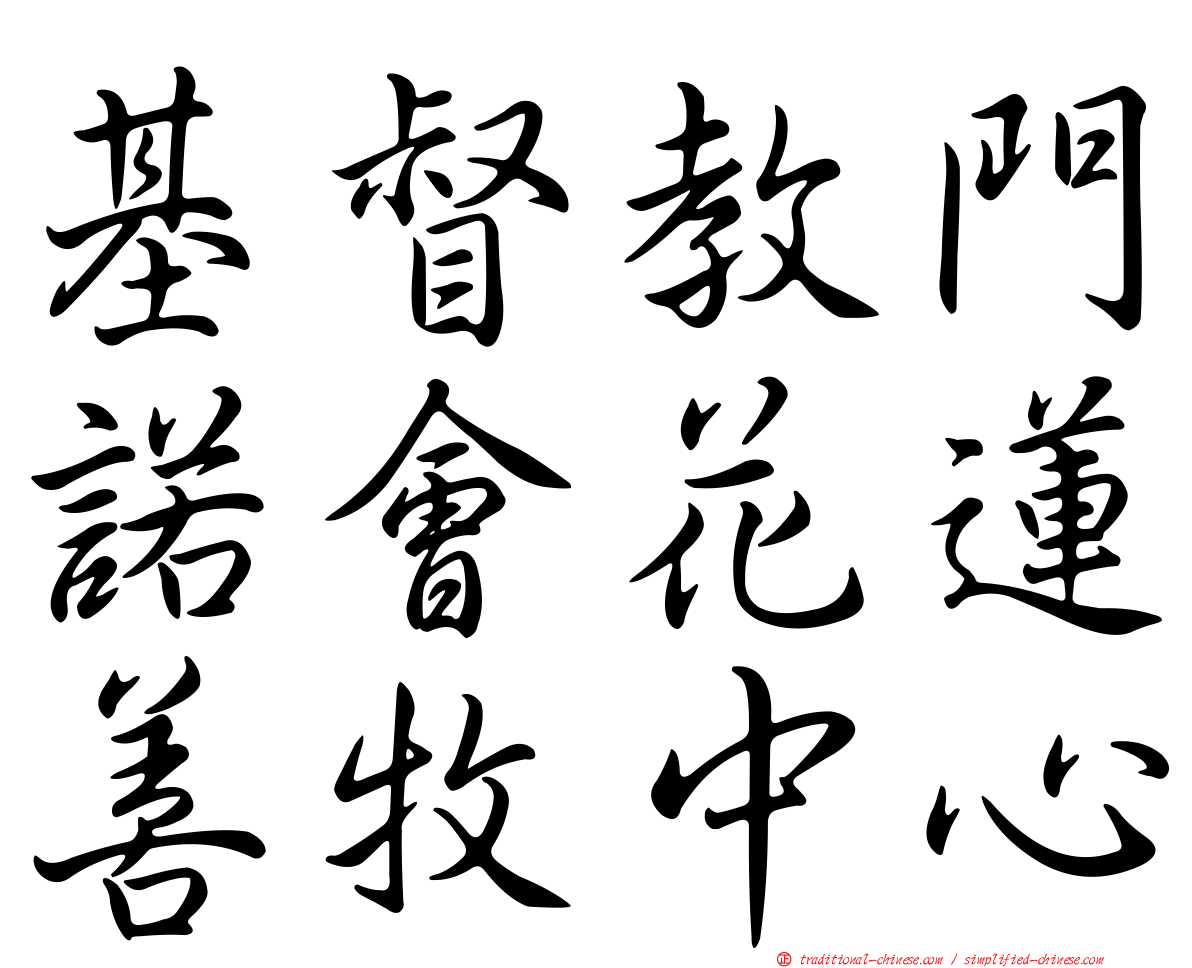 基督教門
諾會花蓮
善牧中心
㊣ traditional-chinese.com / simplified-chinese.com